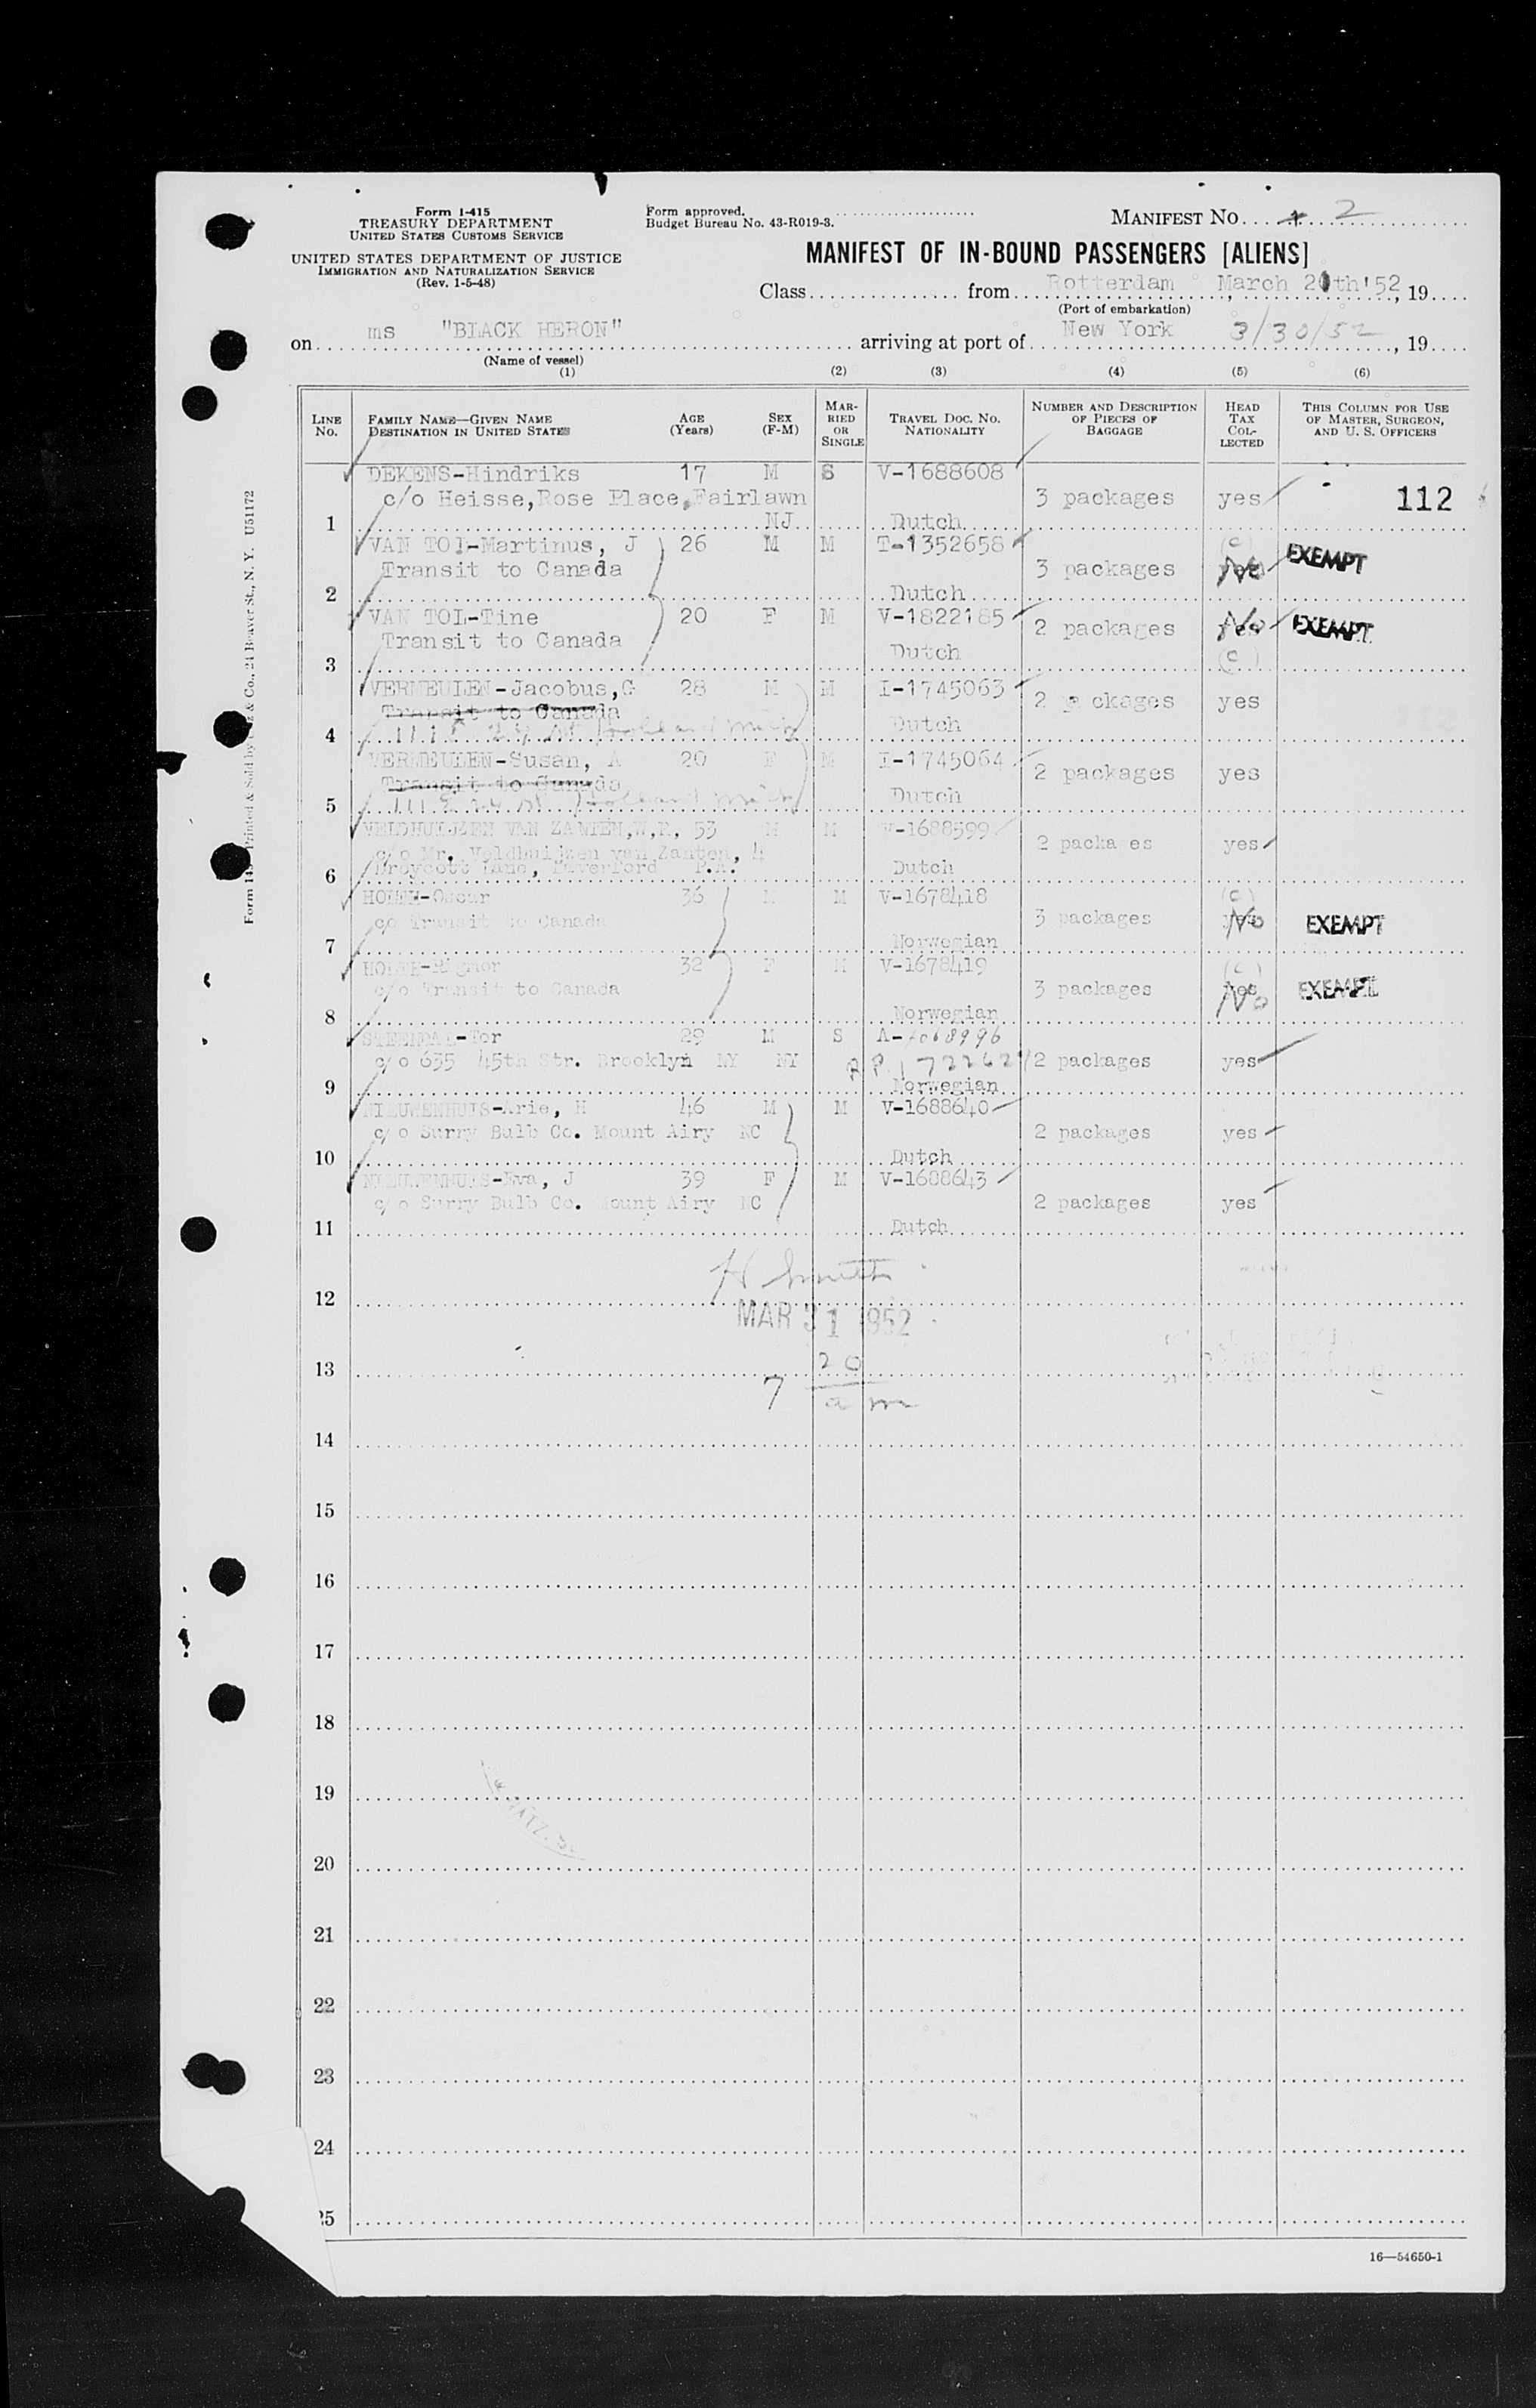 Form I-415
TREASURY DEPARTMENT
UNITED STATES CUSTOMS SERVICE
UNITED STATES DEPARTMENT OF JUSTICE
IMMIGRATION AND NATURALIZATION SERVICE
(Rev. 1-5-48)
Form approved.
Budget Bureau No. 43-R019-3.
MANIFEST NO. 2
MANIFEST OF IN-BOUND PASSENGERS [ALIENS]
Class from Rotterdam, March 20th '52, 19
(Port of embarkation)
on ms "BLACK HERON" arriving at port of New York 3/30/52, 19
(Name of vessel)
(1) (2) (3) (4) (5) (6)
LINE NO. FAMILY NAME—GIVEN NAME DESTINATION IN UNITED STATES AGE (Years) SEX (F-M) MARRIED OR SINGLE TRAVEL DOC. NO. NATIONALITY NUMBER AND DESCRIPTION OF PIECES OF BAGGAGE HEAD TAX COLLECTED THIS COLUMN FOR USE OF MASTER, SURGEON, AND U. S. OFFICERS
DEKENS-Hindriks 17 M S V-1688608
c/o Heisse, Rose Place, Fairlawn 3 packages yes 112
1 NJ Dutch
VAN TOL-Martinus, J 26 M M T-1352658 (c)
Transit to Canada 3 packages No EXEMPT
2 Dutch
VAN TOL-Tine 20 F M V-1822185
Transit to Canada 2 packages No EXEMPT
3 Dutch (c)
VERMEULEN-Jacobus, G 28 M M I-1745063
Transit to Canada 2 packages yes
4 111 E 24 St Holland Mich Dutch
VERMEULEN-Susan, A 20 F M I-1745064
Transit to Canada 2 packages yes
5 111 E 24 St Holland Mich Dutch
VELDHUIJZEN VAN ZANTEN, W,R, 53 M M V-1688599
c/o Mr. Veldhuijzen van Zanten, 4 2 packa es yes
6 Lane, Haverford P.A. Dutch
HOLTH-Oscar 36 M M V-1678418 (c)
c/o Transit to Canada 3 packages No EXEMPT
7 Norwegian
HOLTH-Rigmor 32 F M V-1678419 (c)
c/o Transit to Canada 3 packages No EXEMPT
8 Norwegian
-Tor 29 M S A-
c/o 635 45th Str. Brooklyn NY NY 2 packages yes
9 Norwegian
NIEUWENHUIS-Arie, H 46 M M V-1688640
c/o Surry Bulb Co. Mount Airy NC 2 packages yes
10 Dutch
NIEUWENHUIS-Eva, J 39 F M V-1688643
c/o Surry Bulb Co. Mount Airy NC 2 packages yes
11 Dutch
H Smith
12
MAR 31 1952
13
7 20 am
14
15
16
17
18
19
20
21
22
23
24
25
16—54650-1